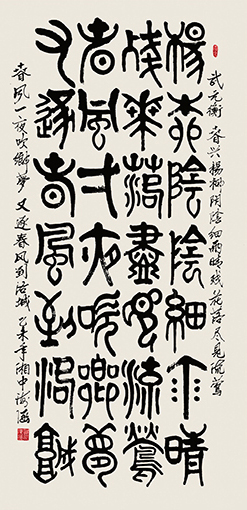 武元衡 春兴 楊柳陰陰細雨晴 残花落尽見流鶯
楊柳陰陰細雨晴
殘華落盡見流鶯
春風一夜吹鄉夢
又逐春風到洛城
春風一夜吹鄉夢 又逐春風到洛城 乙未年湘中